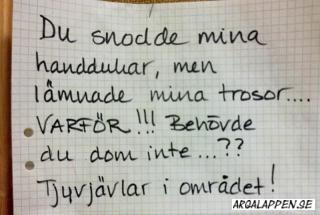 Du snodde mina
handdukar, men
lämnade mina trosor....
VARFÖR!!! Behövde
du dom inte...??
Tjuvjävlar i området!
ARGALAPPEN.SE